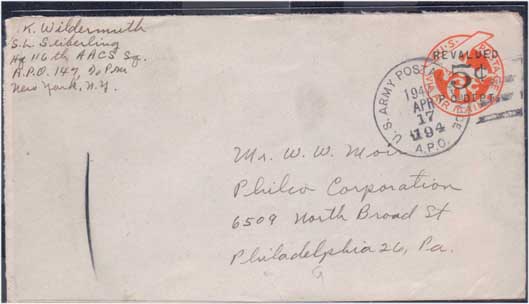 K. Wildermuth
S.L. Seiberling
Hq 116th AACS Sq.
A.P.O. 147, % P.M.
New York, N.Y.
REVALUED
5¢
P.O. DEPT.
U.S. ARMY POSTAL
A.P.O.
194
APR
17
194
U.S. POSTAGE
AIR MAIL
Mr. W. W. Moir
Philco Corporation
6509 North Broad St
Philadelphia 26, Pa.